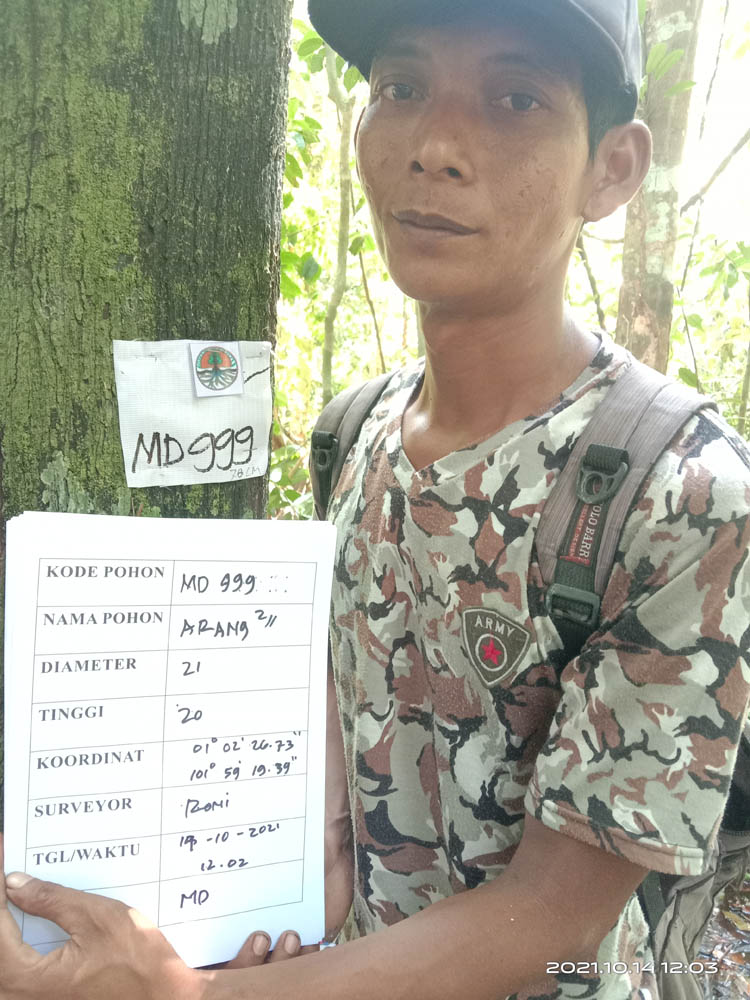 MD 999
78 CM
KODE POHON MD 999
NAMA POHON ARANG 2//
DIAMETER 21
TINGGI 20
KOORDINAT 01° 02' 26.73"
101° 59' 19.39"
SURVEYOR Romi
TGL/WAKTU -10-2021
12.02
MD
ARMY
POLO BARR
2021.10.14 12:03